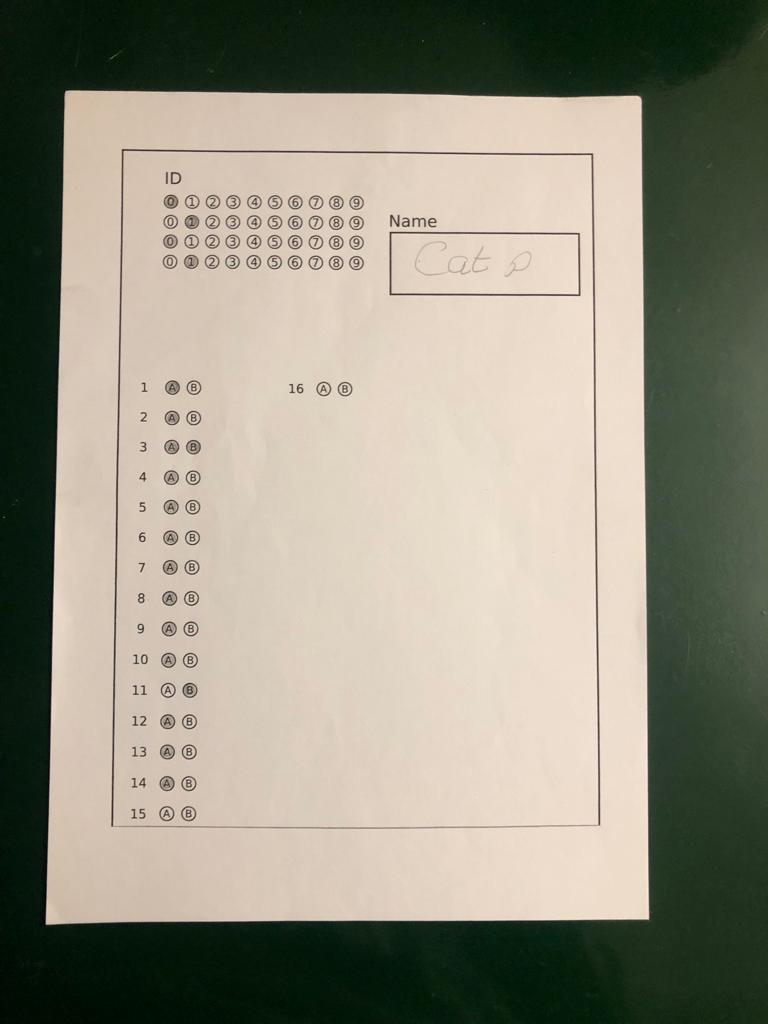 ID
0 1 2 3 4 5 6 7 8 9
0 1 2 3 4 5 6 7 8 9
0 1 2 3 4 5 6 7 8 9
0 1 2 3 4 5 6 7 8 9
Name
Cat
1 A B
16 A B
2 A B
3 A B
4 A B
5 A B
6 A B
7 A B
8 A B
9 A B
10 A B
11 A B
12 A B
13 A B
14 A B
15 A B